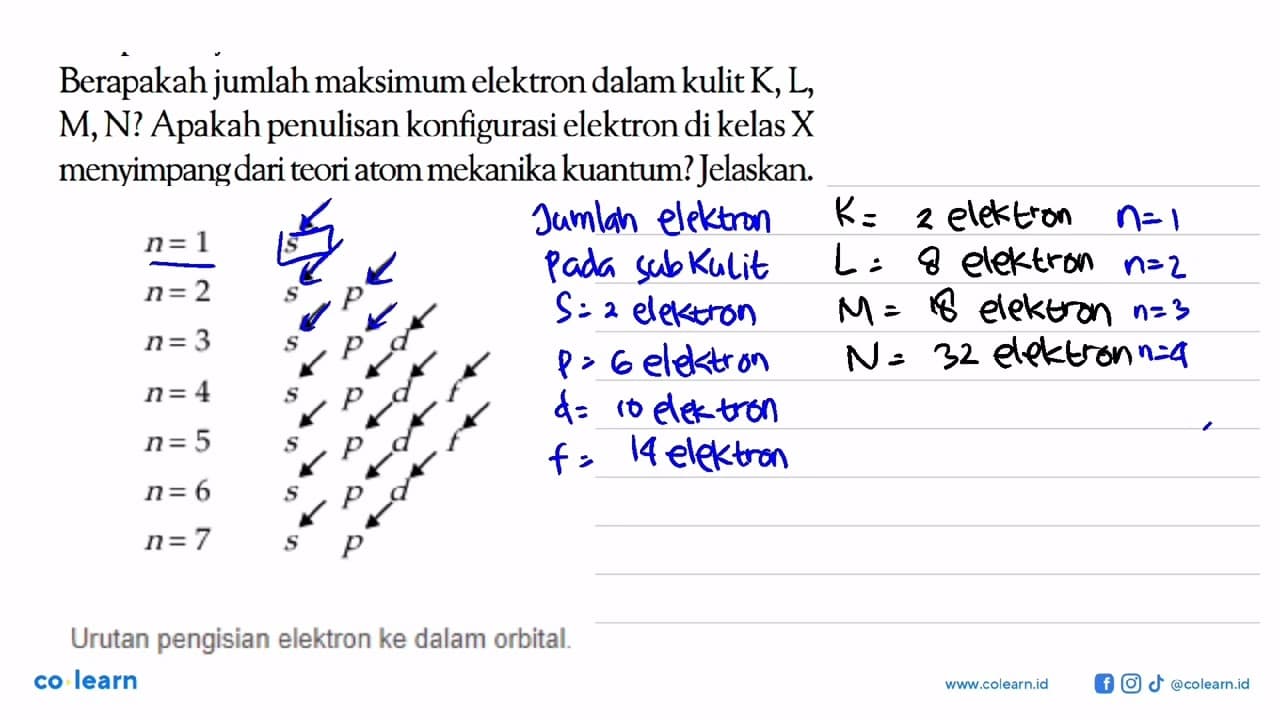 Berapakah jumlah maksimum elektron dalam kulit K, L,
M, N? Apakah penulisan konfigurasi elektron di kelas X
menyimpang dari teori atom mekanika kuantum? Jelaskan.
n = 1 s
n = 2 s p
n = 3 s p d
n = 4 s p d f
n = 5 s p d f
n = 6 s p d
n = 7 s p
Urutan pengisian elektron ke dalam orbital.
Jumlah elektron
pada subkulit
S = 2 elektron
P = 6 elektron
d = 10 elektron
f = 14 elektron
K = 2 elektron n = 1
L = 8 elektron n = 2
M = 18 elektron n = 3
N = 32 elektron n = 4
co learn
www.colearn.id
@colearn.id